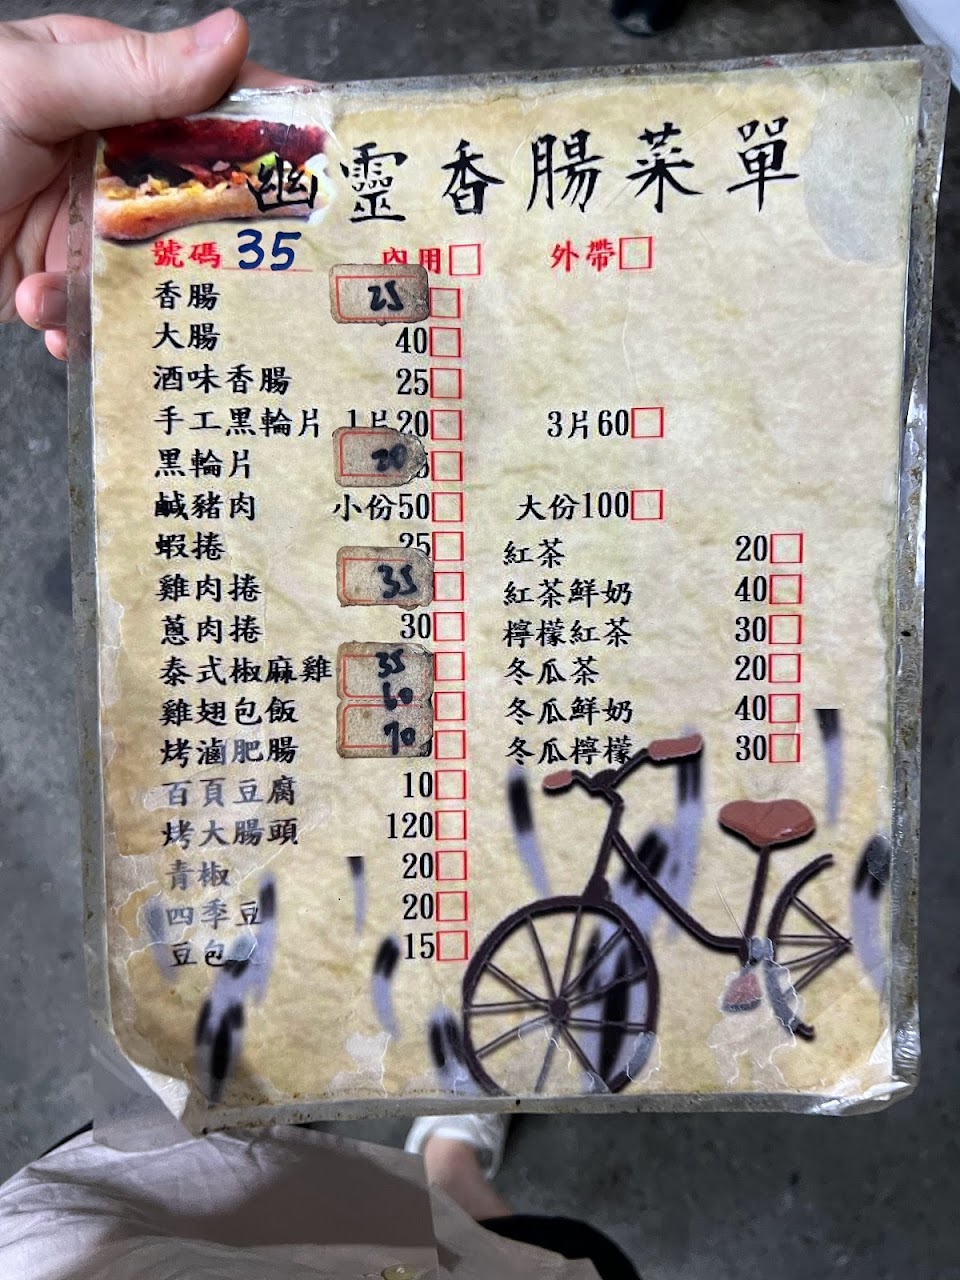 幽靈香腸菜單
號碼 35 內用□ 外帶□
香腸 25□
大腸 40□
酒味香腸 25□
手工黑輪片 1片20□ 3片60□
黑輪片 20□
鹹豬肉 小份50□ 大份100□
蝦捲 25□ 紅茶 20□
雞肉捲 35□ 紅茶鮮奶 40□
蔥肉捲 30□ 檸檬紅茶 30□
泰式椒麻雞 35□ 冬瓜茶 20□
雞翅包飯 60□ 冬瓜鮮奶 40□
烤滷肥腸 70□ 冬瓜檸檬 30□
百頁豆腐 10□
烤大腸頭 120□
青椒 20□
四季豆 20□
豆包 15□